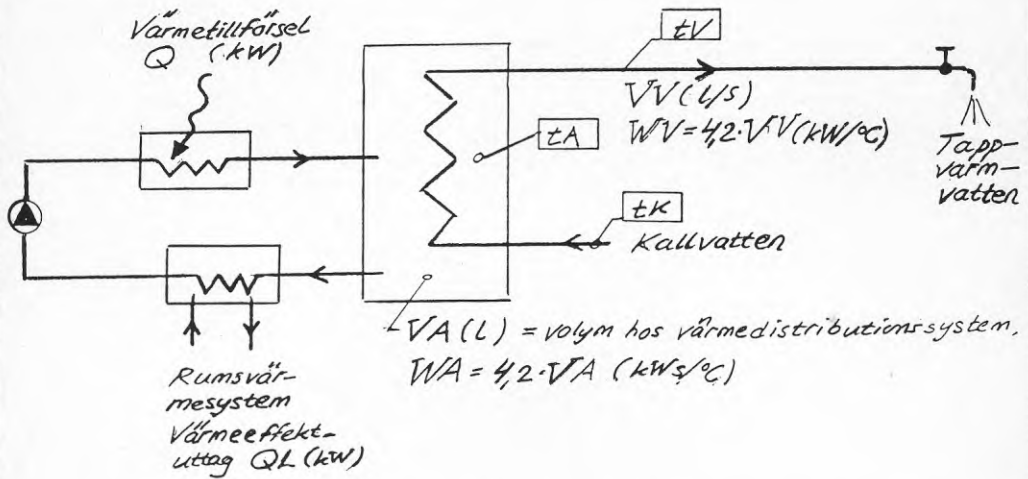 Värmetillförsel
Q (kW)
tV
V̇V (l/s)
WV = 4,2·V̇V (kW/°C)
tA
Tapp-
varm-
vatten
tK
Kallvatten
VA (L) = volym hos värmedistributionssystem.
WA = 4,2·VA (kWs/°C)
Rumsvär-
mesystem
Värmeeffekt-
uttag QL (kW)